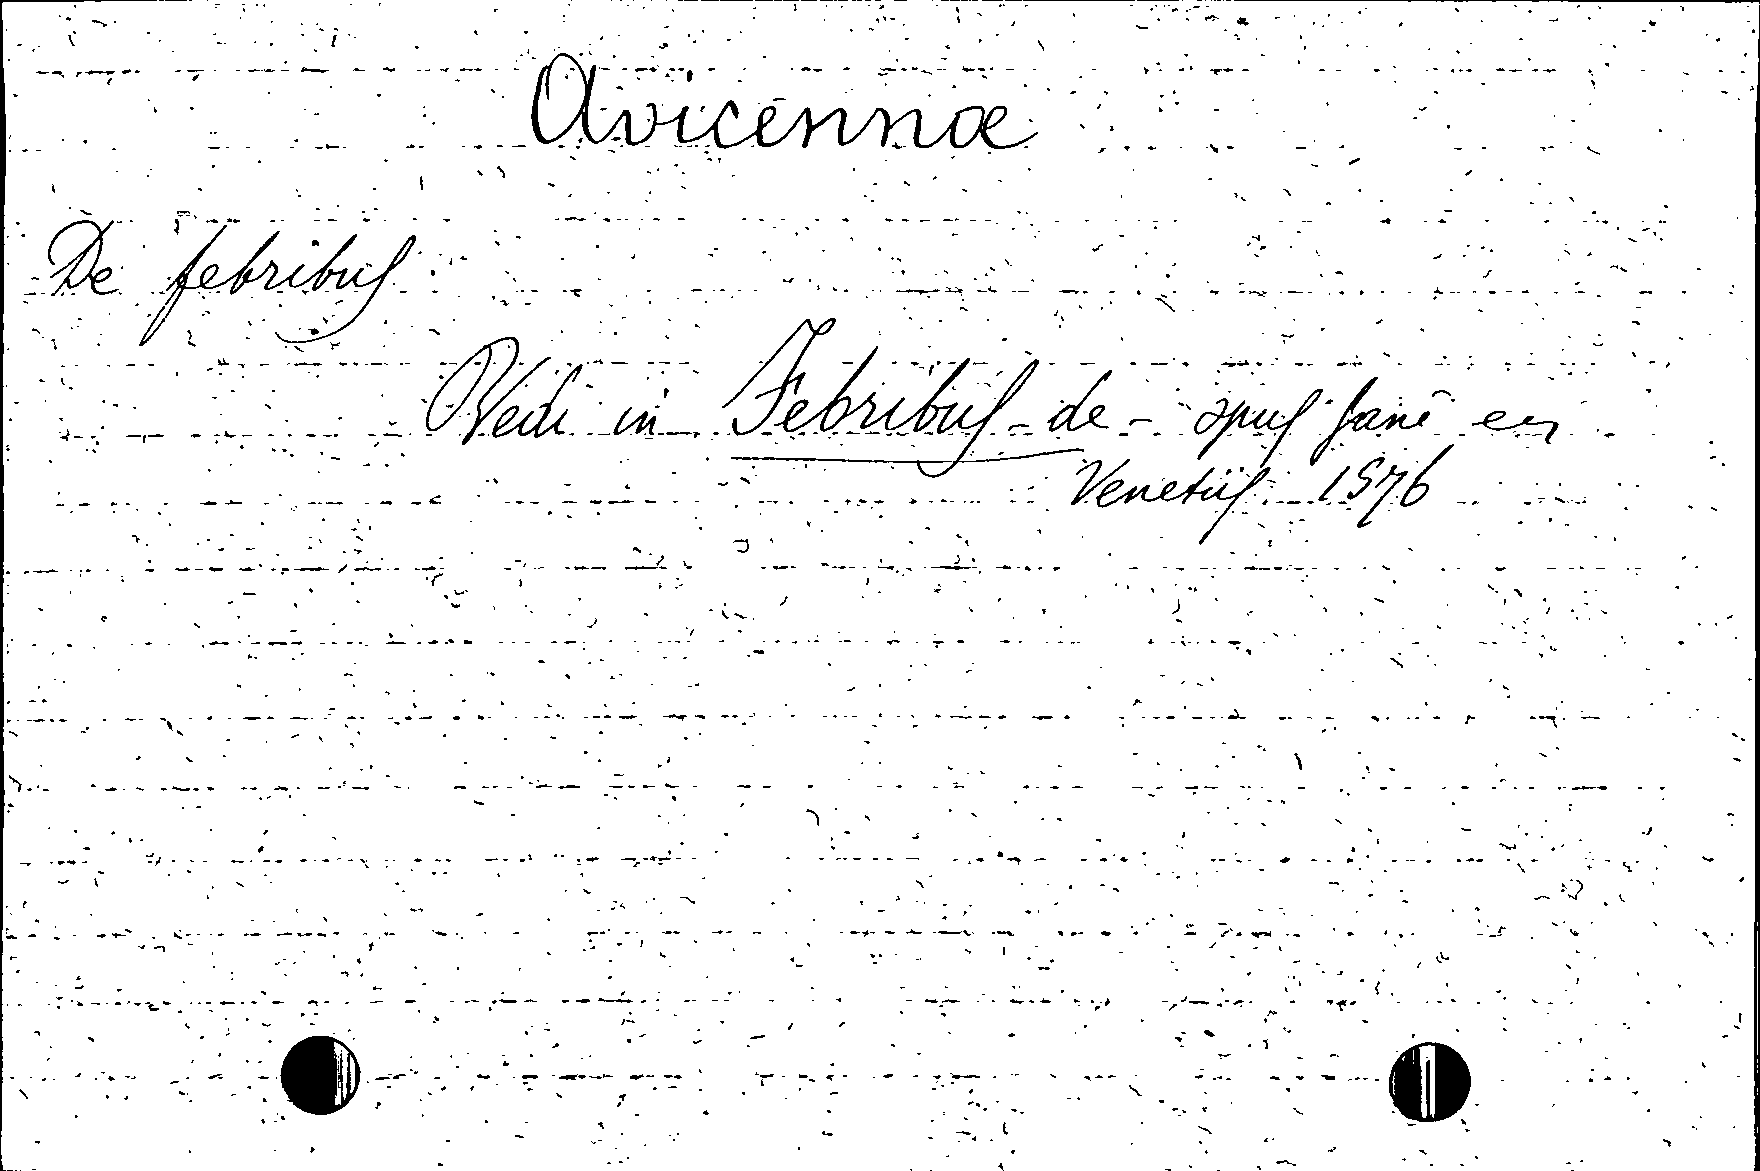 Avicennæ
De febribus
Vedi in Febribus - de - opus sanè ecc
Venetiis 1576